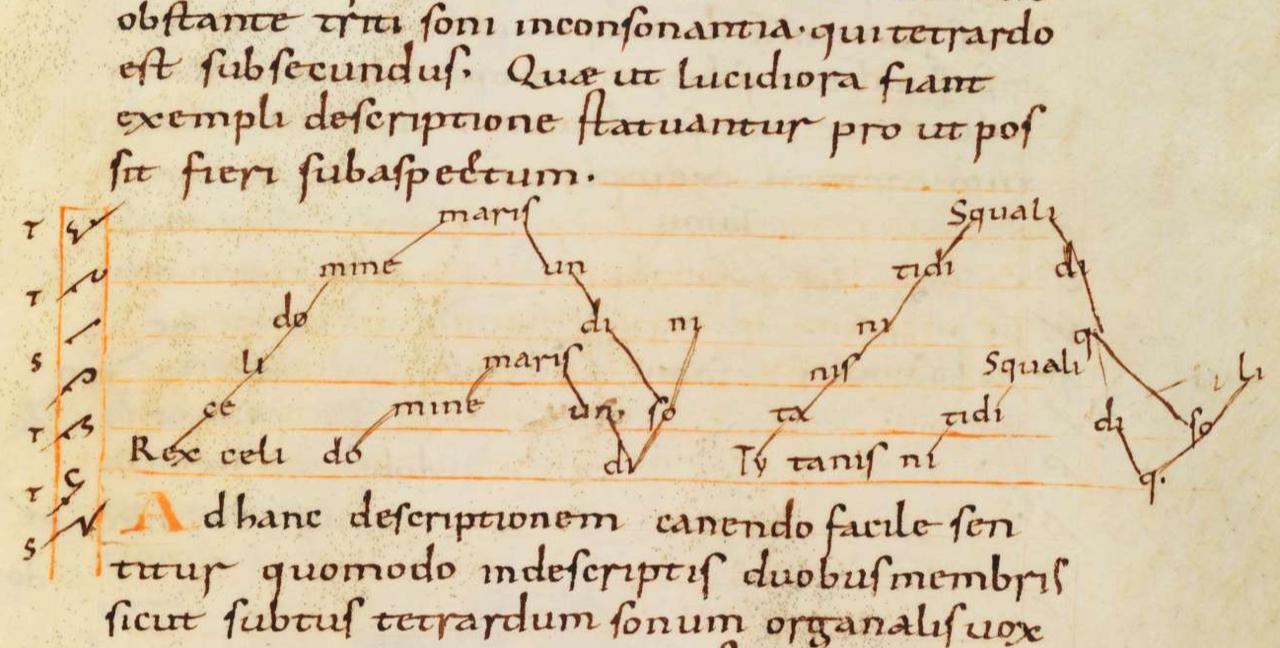 obstante triti soni inconsonantia· qui tetrardo
est subsecundus. Quæ ut lucidiora fiant
exempli descriptione statuantur pro ut pos
sit fieri sub aspectum.
T maris Squali
mine un tidi di
T
do di ni ni q
S li maris nis Squali li
ce mine un so ta tidi di so
T Rex celi do di Ty tanis ni q.
T
Ad hanc descriptionem canendo facile sen
S
titur quomodo in descriptis duobus membris
sicut subtus tetrardum sonum organalis uox